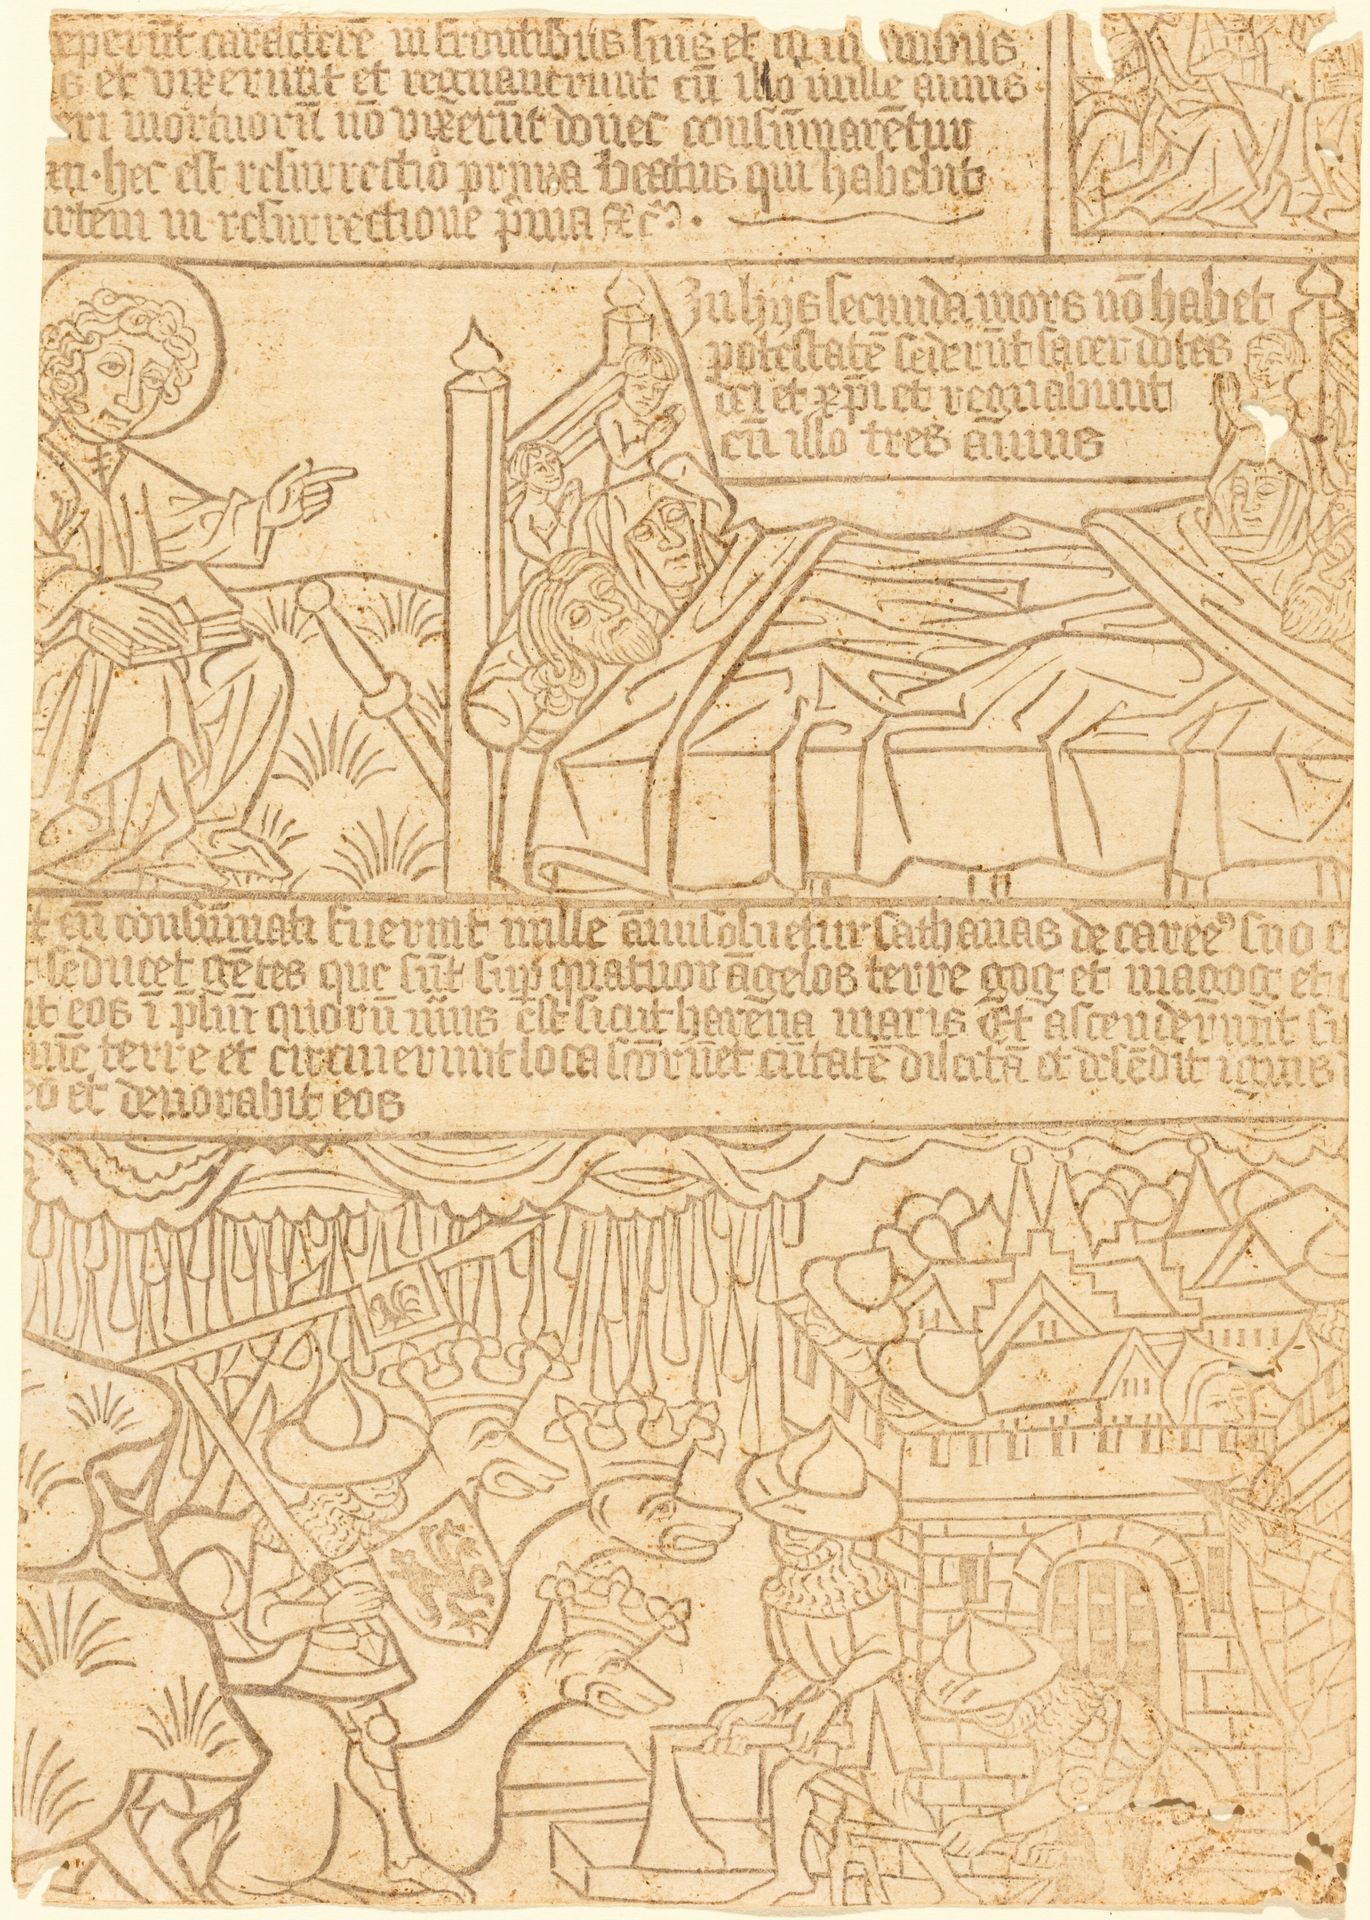 caracterē in frontibus suis et in
et vixerunt et regnauerunt cū illo mille annis
mortuorū nō vixerūt donec consūmarētur
hec est resurrectio prima beatus qui habebit
in resurrectione p̄ma
In hijs secunda mors nō habet
potestatē sed erūt sacerdotes
dei et xp̄i et regnabunt
cū illo tres annis
cū consūmati fuerint mille āni soluetur sathanas de carcē suo
seducet gētes que sūt sup quatuor āgelos terre gog et magog et
eos ī p̄liū quorū nūus ē sicut harena maris Et ascenderunt
terre et circuierunt loca scōrū et ciuitatē dilectā et desēdit ignis
et deuorabit eos